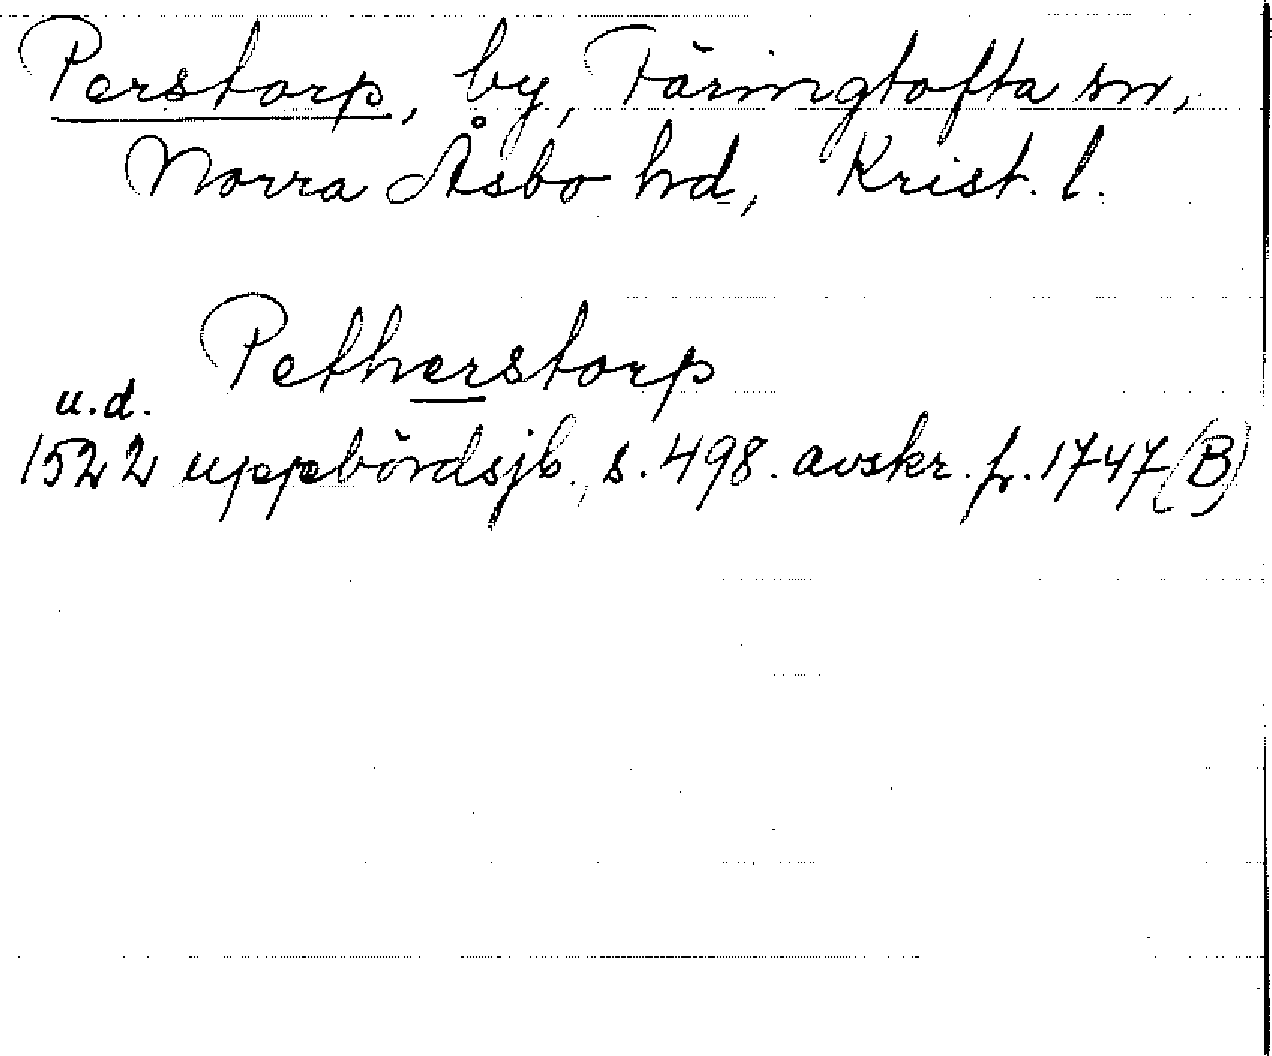 Perstorp, by, Färingtofta sn,
Norra Åsbo hd, Krist. l.
Petherstorp
u.d.
1522 uppbördsjb., s. 498. avskr. fr. 1747 (B)